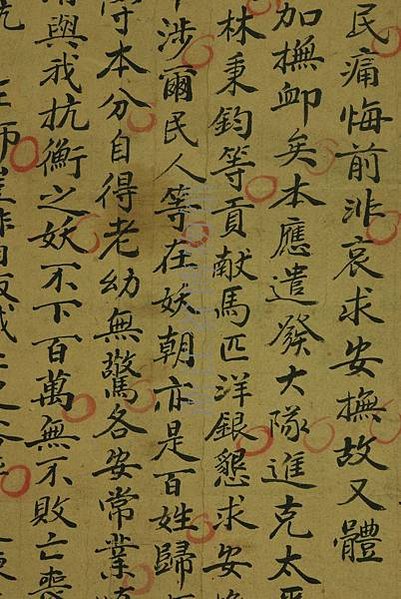 民痛悔前非哀求安撫故又體
加撫卹矣本應遣發大隊進克太平
林秉鈞等貢献馬匹洋銀懇求安
涉爾民人等在妖朝亦是百姓歸
守本分自得老幼無驚各安常業
與我抗衡之妖不下百萬無不敗亡喪
王師